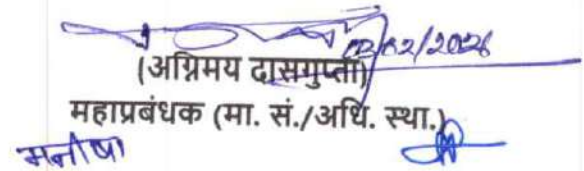 02/02/2026
(अग्निमय दासगुप्ता)
महाप्रबंधक (मा. सं./अधि. स्था.)
मनीषा